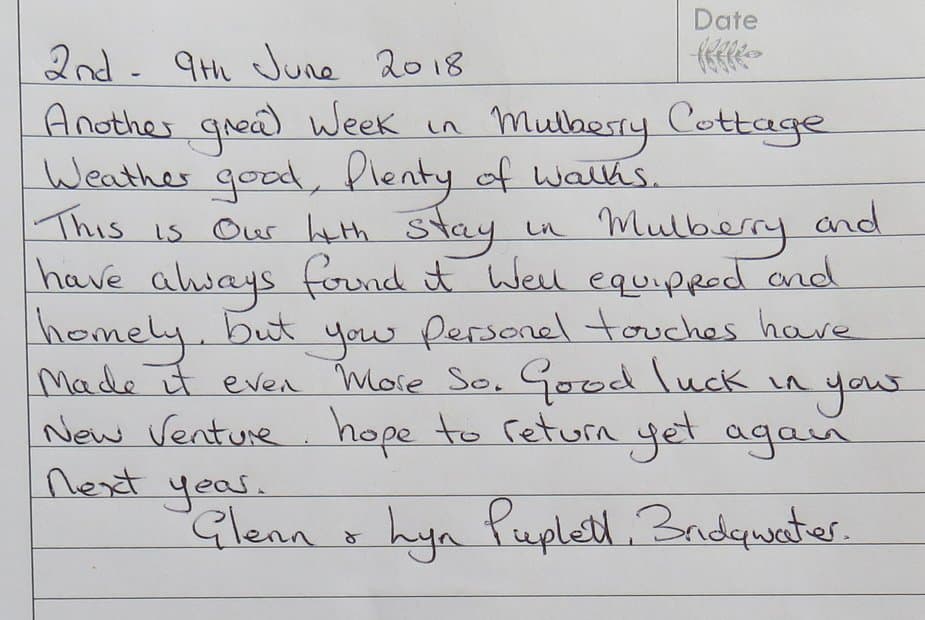 Date
2nd - 9th June 2018
Another great Week in Mulberry Cottage
Weather good, Plenty of walks.
This is Our 4th stay in Mulberry and
have always found it Well equipped and
homely. but your Personel touches have
Made it even More So. Good luck in your
New Venture. hope to return yet again
Next year.
Glenn & Lyn Puplett, Bridgwater.